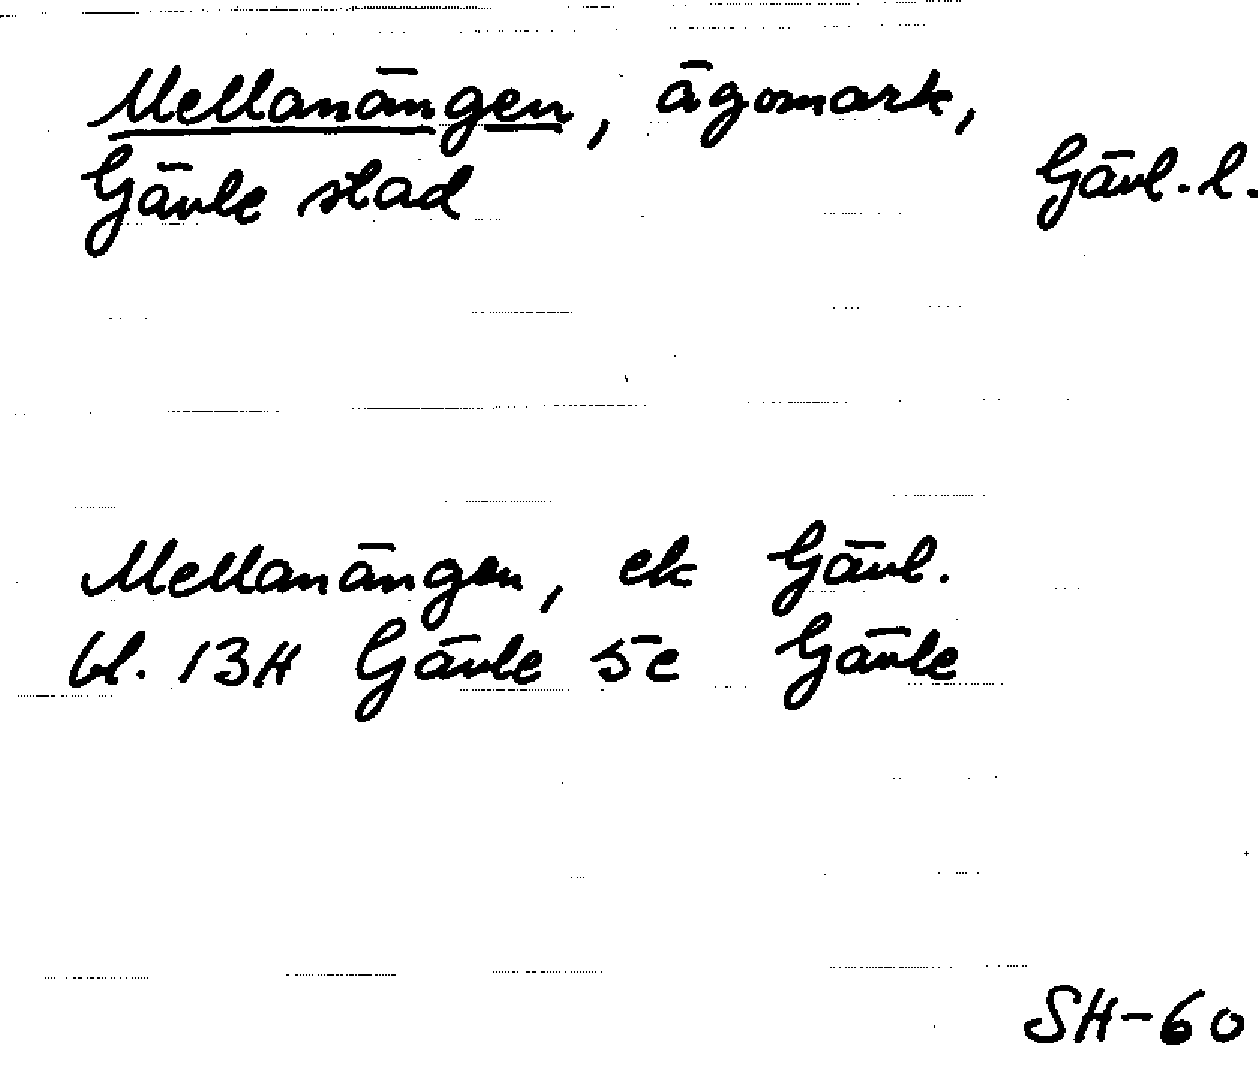 Mellanängen, ägomark,
Gävle stad Gävl. l.
Mellanängen, ek Gävl.
bl. 13H Gävle 5c Gävle
SH-60